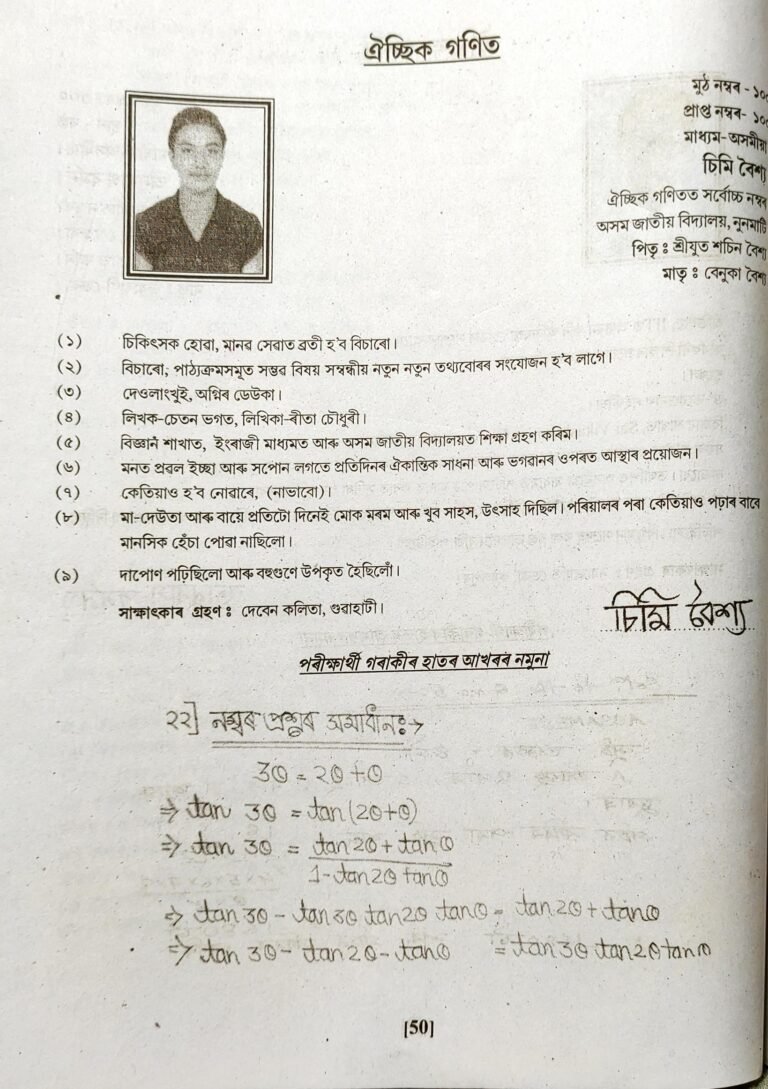 ঐচ্ছিক গণিত
মুঠ নম্বৰ - ১০০
প্ৰাপ্ত নম্বৰ- ১০০
মাধ্যম- অসমীয়া
চিমি বৈশ্য
ঐচ্ছিক গণিতত সৰ্বোচ্চ নম্বৰ
অসম জাতীয় বিদ্যালয়, নুনমাটি
পিতৃ ঃ শ্ৰীযুত শচিন বৈশ্য
মাতৃ ঃ ৰেনুকা বৈশ্য
(১) চিকিৎসক হোৱা, মানৱ সেৱাত ব্ৰতী হ'ব বিচাৰো।
(২) বিচাৰো, পাঠ্যক্ৰমসমূত সম্ভৱ বিষয় সম্বন্ধীয় নতুন নতুন তথ্যবোৰৰ সংযোজন হ'ব লাগে।
(৩) দেওলাংখুই, অগ্নিৰ ডেউকা।
(৪) লিখক-চেতন ভগত, লিখিকা-ৰীতা চৌধুৰী।
(৫) বিজ্ঞান শাখাত, ইংৰাজী মাধ্যমত আৰু অসম জাতীয় বিদ্যালয়ত শিক্ষা গ্ৰহণ কৰিম।
(৬) মনত প্ৰৱল ইচ্ছা আৰু সপোন লগতে প্ৰতিদিনৰ ঐকান্তিক সাধনা আৰু ভগৱানৰ ওপৰত আস্থাৰ প্ৰয়োজন।
(৭) কেতিয়াও হ'ব নোৱাৰে, (নাভাবো)।
(৮) মা-দেউতা আৰু বায়ে প্ৰতিটো দিনেই মোক মৰম আৰু খুব সাহস, উৎসাহ দিছিল। পৰিয়ালৰ পৰা কেতিয়াও পঢ়াৰ বাবে
মানসিক হেঁচা পোৱা নাছিলো।
(৯) দাপোণ পঢ়িছিলো আৰু বহুগুণে উপকৃত হৈছিলোঁ।
সাক্ষাৎকাৰ গ্ৰহণ ঃ দেবেন কলিতা, গুৱাহাটী।
চিমি বৈশ্য
পৰীক্ষাৰ্থী গৰাকীৰ হাতৰ আখৰৰ নমুনা
২২] নম্বৰ প্ৰশ্নৰ সমাধানঃ→
3θ = 2θ+θ
⇒ tan 3θ = tan(2θ+θ)
⇒ tan 3θ = tan2θ + tanθ
1-tan2θ tanθ
⇒ tan3θ - tan3θ tan2θ tanθ = tan2θ + tanθ
⇒ tan3θ - tan2θ - tanθ = tan3θ tan2θ tanθ
[50]